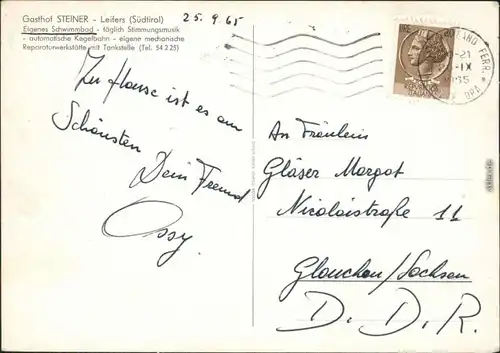 Gasthof STEINER - Leifers (Südtirol)
Eigenes Schwimmbad - täglich Stimmungsmusik
- automatische Kegelbahn - eigene mechanische
Reparaturwerkstätte mit Tankstelle (Tel. 54 2 25)
25. 9. 65
FERR.
-21
-IX
Zu Hause ist es am
Schönsten
Dein Freund
Ossy
An Fräulein
Gläser Margot
Nicolaistraße 11
Glauchau/Sachsen
D. D. R.